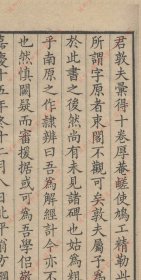 君敦夫彙得十卷厚菴嗟使鳩工精勒此
所謂字原者東閣不觀可矣敦夫屬子為
於此書之後然尚有未見諸碑也姑為粗
乎南原之作隸辨曰吾為解經計今亦不
也然慎闕疑而審援據或可為吾學侶敬
嘉慶十五年冬十二月八日北平翁方綱